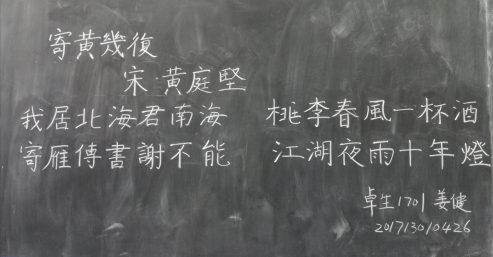 寄黃幾復
宋·黃庭堅
我居北海君南海 桃李春風一杯酒
寄雁傳書謝不能 江湖夜雨十年燈
卓生1701 姜健
201713010426